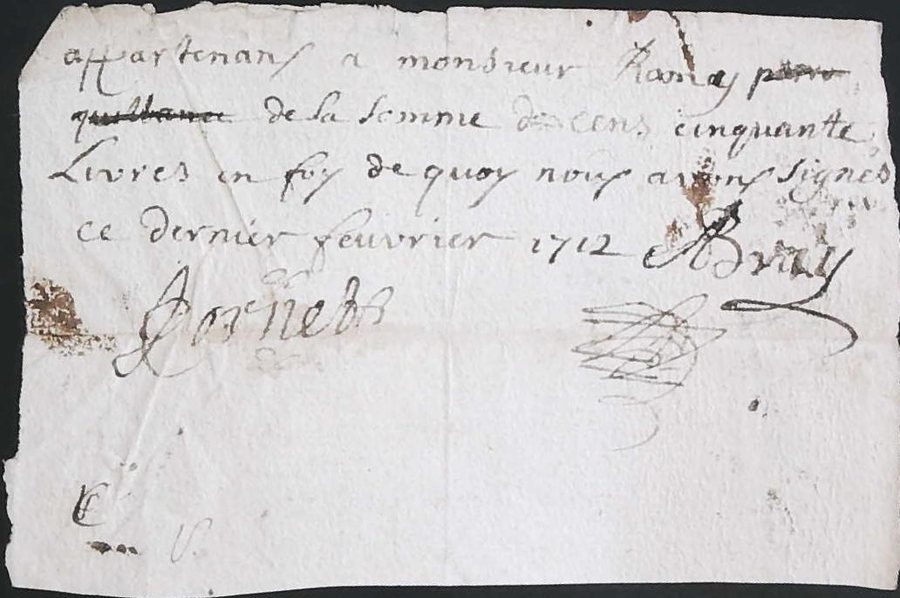 appartenans a monsieur Ramey
de la somme de cens cinquante
Livres en foy de quoy nous avons signés
ce dernier feuvrier 1712 ABray
Cornets